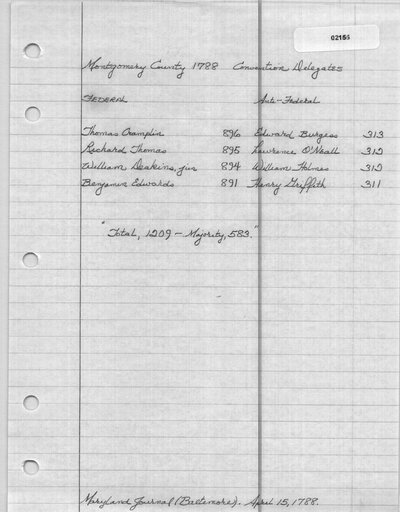 02156
Montgomery County 1788 Convention Delegates
FEDERAL Anti-Federal
Thomas Cramplin 896 Edward Burgess 313
Richard Thomas 895 Lawrence O'Neall 312
William Deakins, jun 894 William Holmes 312
Benjamin Edwards 891 Henry Griffith 311
"Total, 1209 - Majority, 583."
Maryland Journal (Baltimore). April 15, 1788.